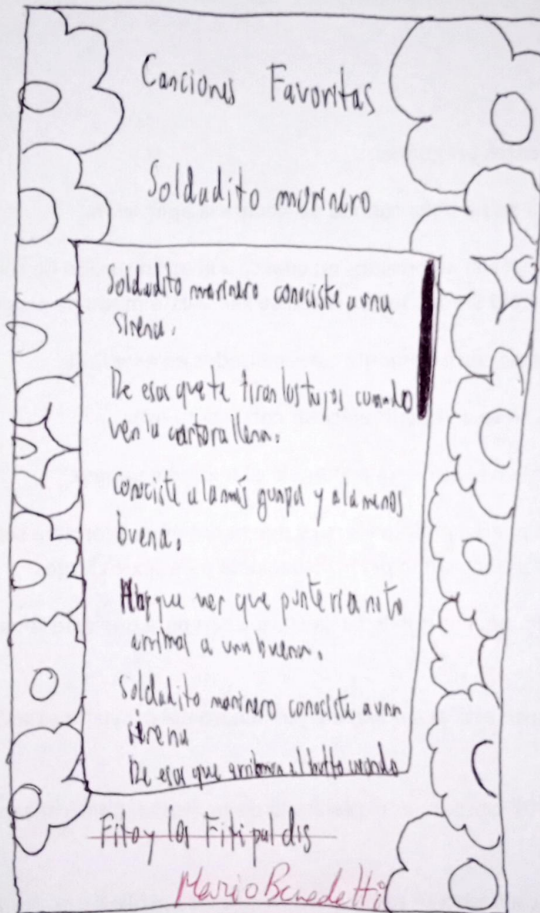 Canciones Favoritas
Soldadito marinero
Soldadito marinero conociste a una
sirena.
De esas que te tiran los tejos cuando
ven la cartera llena.
conociste a la más guapa y a la menos
buena.
Hay que ver que puntería no te
arrimas a una buena.
Soldadito marinero conociste a una
sirena
De esas que
cuando
Fito y los Fitipaldis
Mario Benedetti